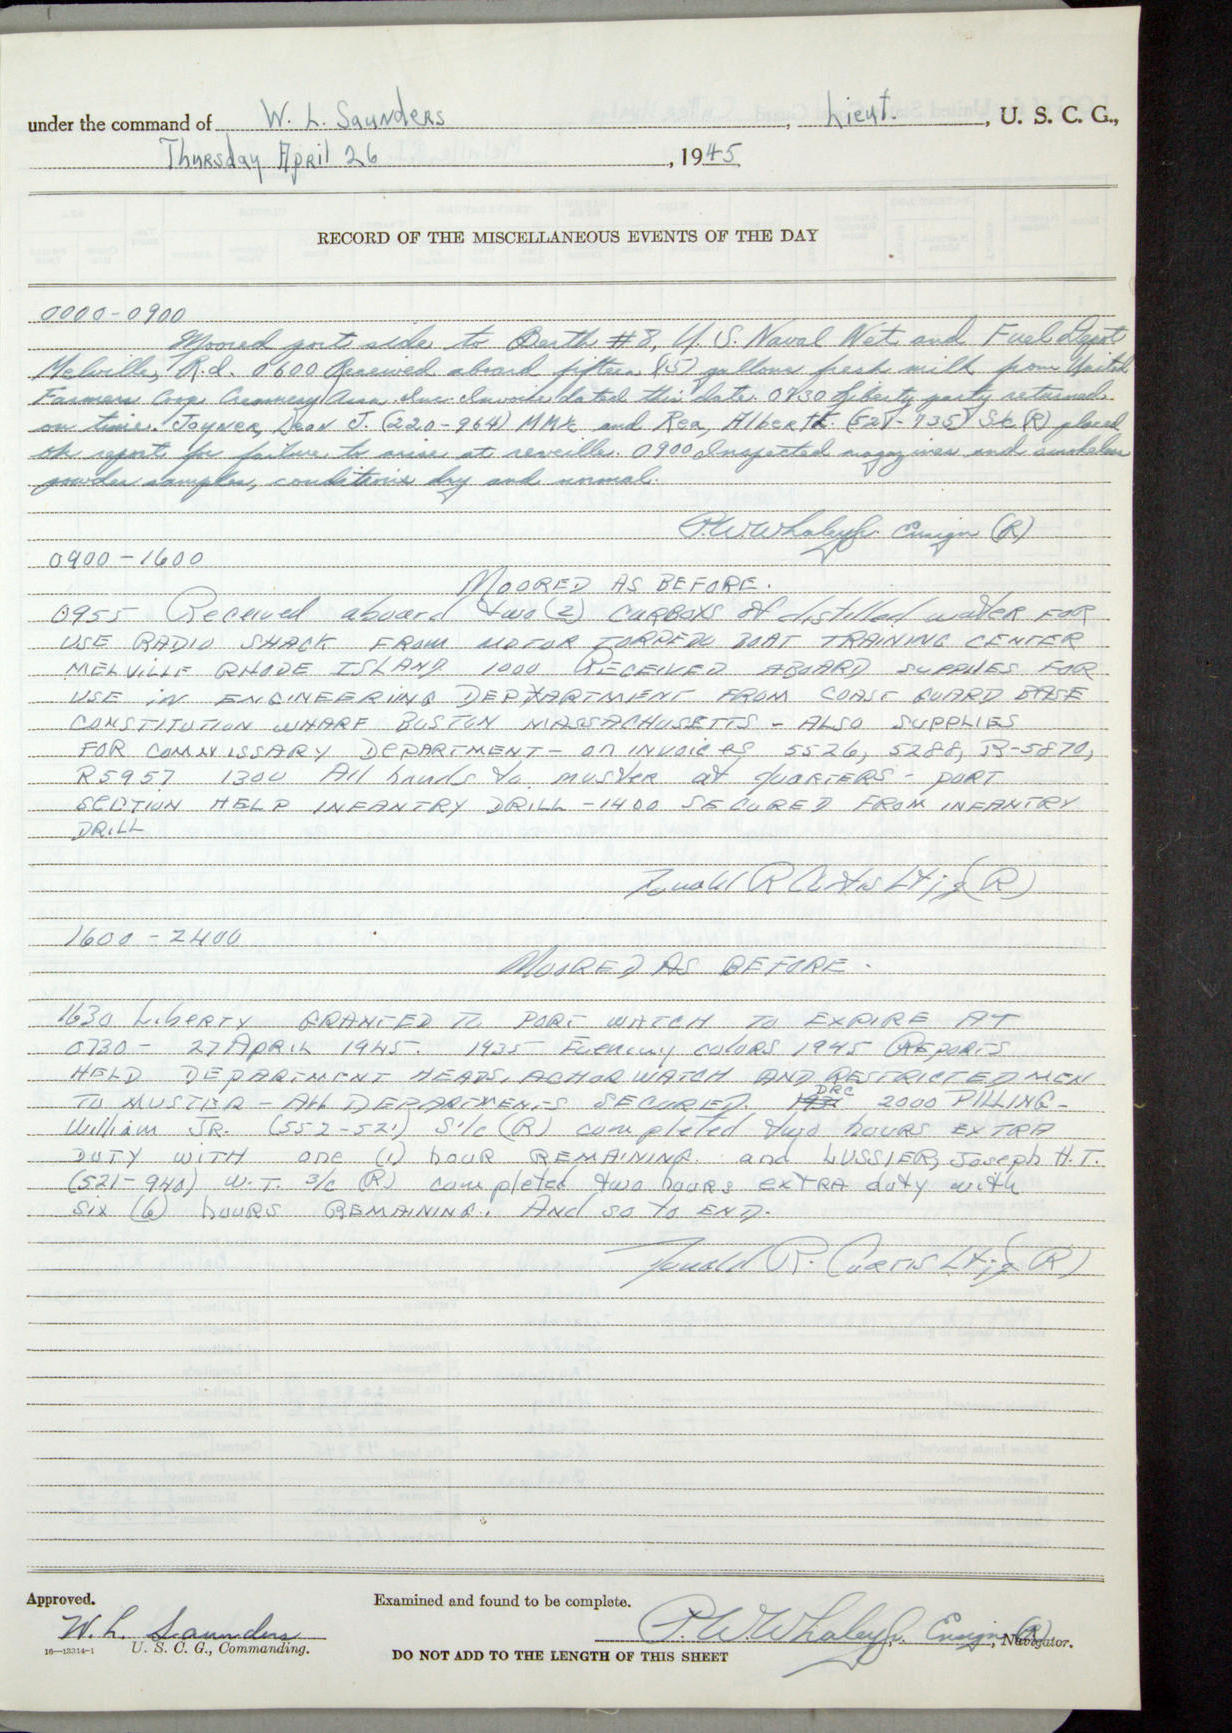 under the command of W. L. Saunders, Lieut., U. S. C. G.,
Thursday April 26, 1945
RECORD OF THE MISCELLANEOUS EVENTS OF THE DAY
0000-0900
Moored port side to Berth #8, U. S. Naval Net and Fuel Depot
Melville, R.I. 0600 Received aboard fifteen (15) gallons fresh milk from United
Farmers Coop Creamery Assn. Inc. Invoice dated this date. 0730 Liberty party returned
on time. Joyner, Leon J. (220-964) MM2c and Rea, Albert (527-935) S1c (R) placed
on report for failure to arise at reveille. 0900 Inspected magazines and smokeless
powder samples, conditions dry and normal.
P.W. Whaley Jr. Ensign (R)
0900-1600
MOORED AS BEFORE.
0955 Received aboard two (2) CARBOYS of distilled water FOR
USE RADIO SHACK FROM MOTOR TORPEDO BOAT TRAINING CENTER
MELVILLE RHODE ISLAND 1000 RECEIVED ABOARD SUPPLIES FOR
USE IN ENGINEERING DEPARTMENT FROM COAST GUARD BASE
CONSTITUTION WHARF BOSTON MASSACHUSETTS - ALSO SUPPLIES
FOR COMMISSARY DEPARTMENT - on INVOICES 5526, 5288, R-5870,
R5957 1300 All hands to muster at QUARTERS - PORT
SECTION HELP INFANTRY DRILL - 1400 SECURED FROM INFANTRY
DRILL
Donald R Curtis Lt.jg (R)
1600-2400
MOORED AS BEFORE.
1630 Liberty GRANTED TO PORT WATCH TO EXPIRE AT
0730 - 27 APRIL 1945. 1935 Evening colors 1945 REPORTS
HELD DEPARTMENT HEADS, ACHOR WATCH AND RESTRICTED MEN
TO MUSTER - All DEPARTMENTS SECURED. DRC 2000 PILLING -
William JR. (552-521) S1/c (R) completed two hours EXTRA
DUTY WITH one (1) hour REMAINING. and LUSSIER, Joseph H.T.
(521-940) W.T. 3/c (R) completed two hours EXTRA duty with
six (6) hours REMAINING. And so to END.
Donald R. Curtis Lt.jg (R)
Approved.
Examined and found to be complete.
W. L. Saunders
P.W. Whaley Jr. Ensign (R), Navigator.
16-13314-1 U. S. C. G., Commanding.
DO NOT ADD TO THE LENGTH OF THIS SHEET